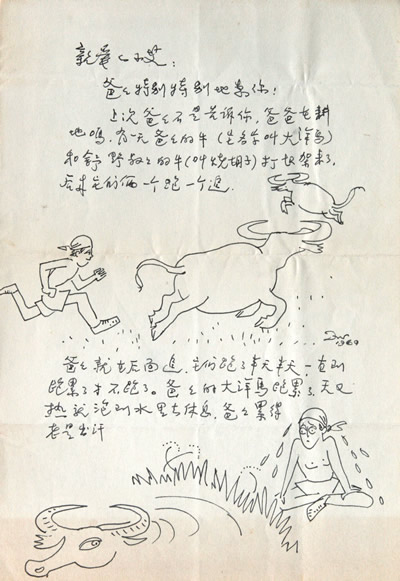 親爱的小艾:
爸〻特别特别地想你!
上次爸〻不是告诉你,爸爸在耕
地吗,有一天爸〻的牛(它名字叫大洋马)
和舒野叔〻的牛(叫烧胡子)打起架来了,
后来它们俩一个跑一个追.
1969
爸〻就在后面追,它们跑了半天半天一直到
跑累了才不跑了。爸〻的大洋马跑累了,天又
热就泡到水里去休息,爸〻累得
老是出汗